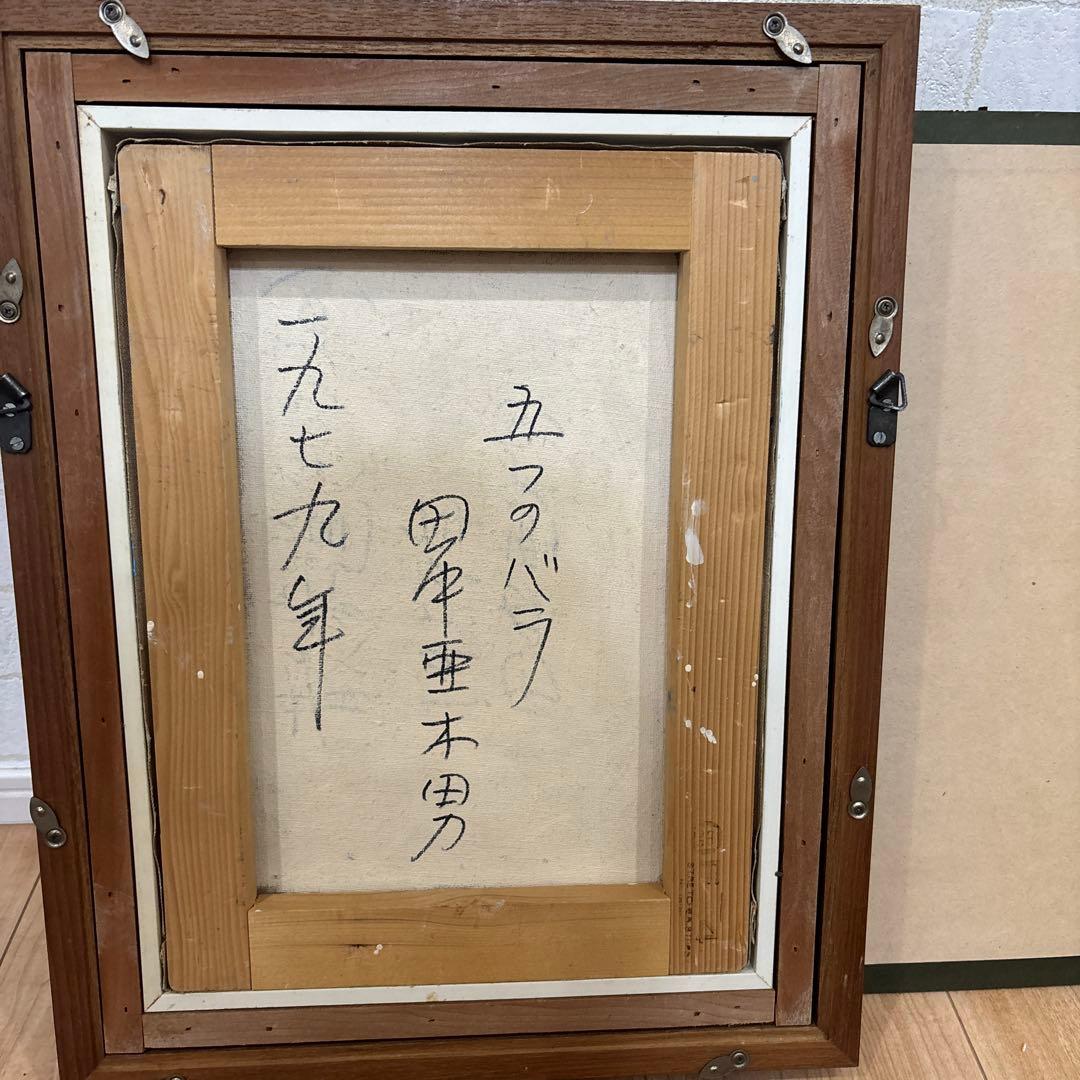 五つのバラ
田中亜木男
一九七九年